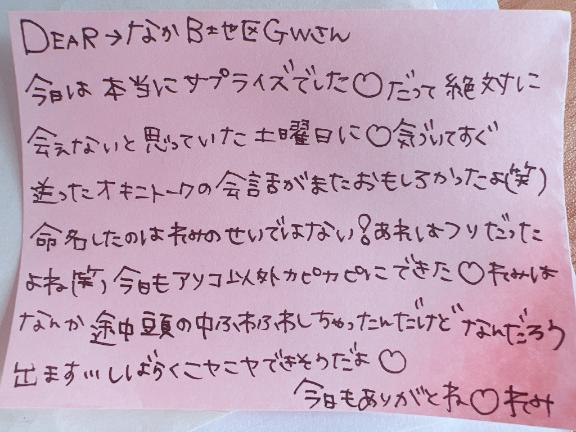 DEAR→なかB地区GWさん
今日は本当にサプライズでした♡だって絶対に
会えないと思っていた土曜日に♡気づいてすぐ
送ったオキニトークの会話がまたおもしろかったよ(笑)
命名したのはれみのせいではない!あれはフリだった
よね(笑)今日もアソコ以外カピカピにできた♡れみは
なんか途中頭の中ふわふわしちゃったんだけどなんだろう
出ます…しばらくニヤニヤできそうだよ♡
今日もありがとね♡れみ